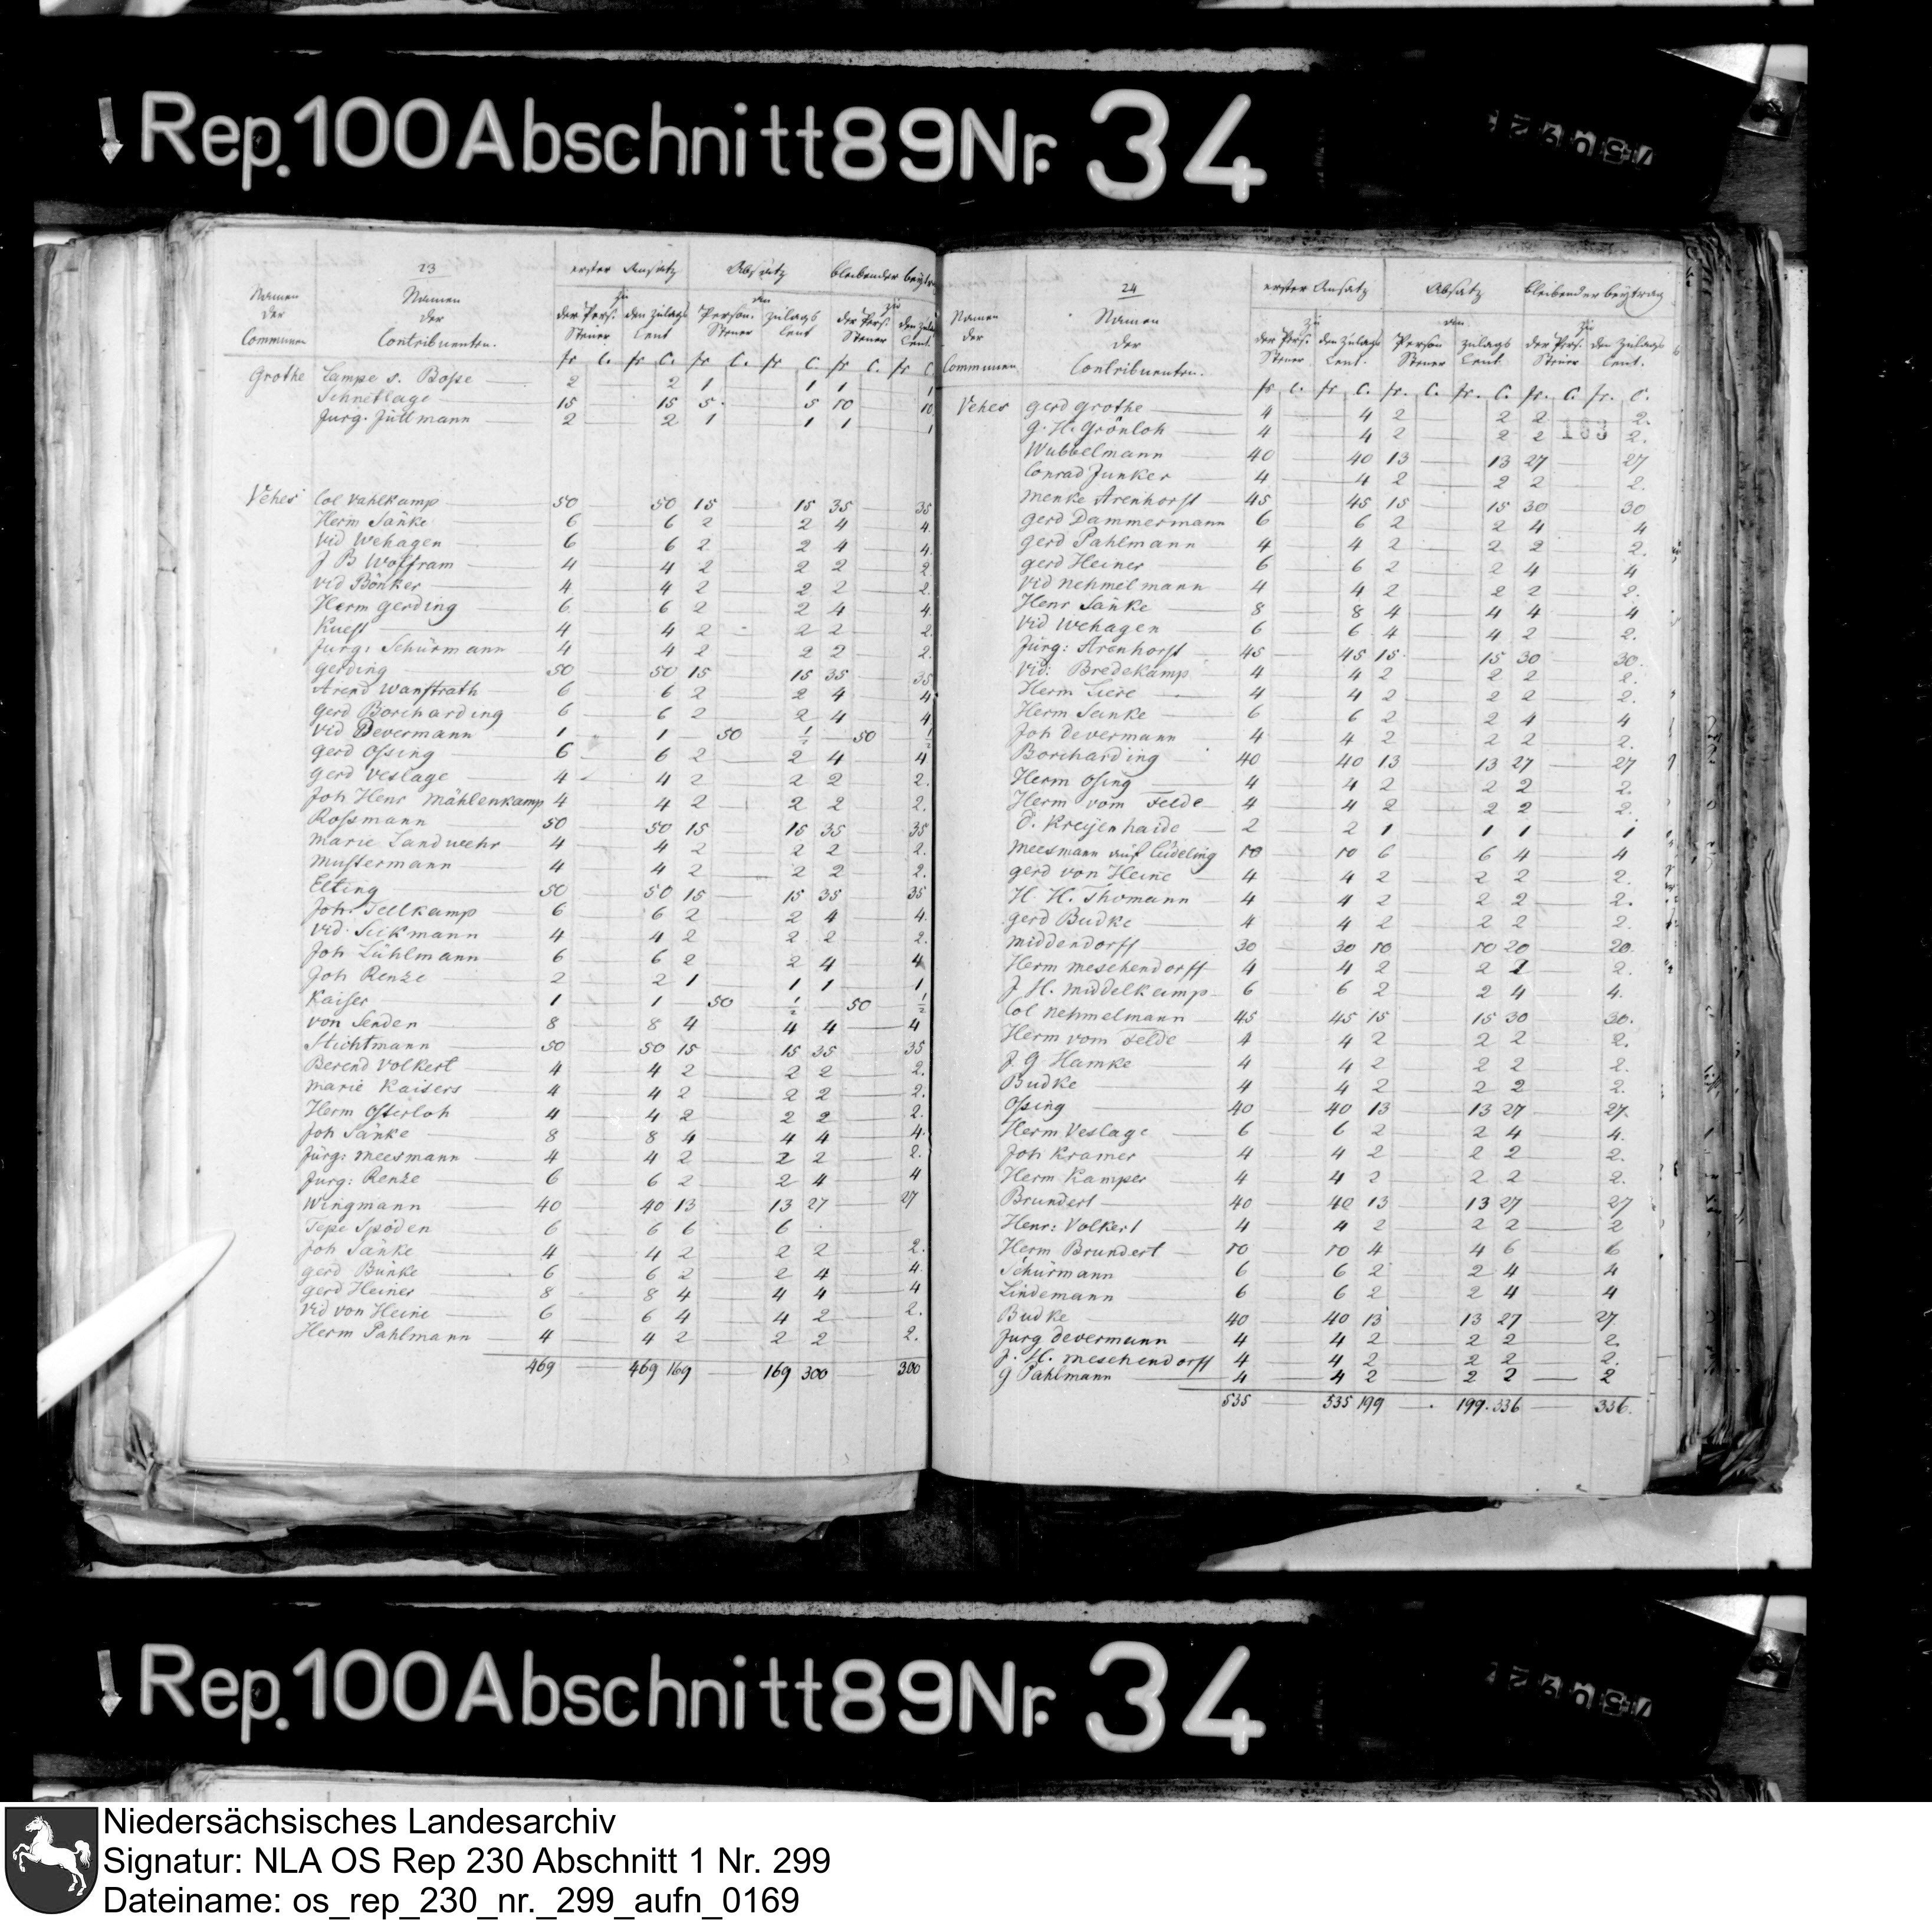 Rep. 100 Abschnitt 89 Nr. 34
23
erster Ansatz Absatz bleibender beytrag
Namen der Communen Namen der Contribuenten. zu der Pers. Steuer den Zulags Cent an Person. Steuer Zulags Cent zu der Pers. Steuer den Zulags Cent.
fr C. fr C. fr C. fr C. fr C. fr C
Grothe Lampe s. Bosse 2 2 1 1 1 1
Schnetlage 15 15 5 5 10 10
Jurg. Juttmann 2 2 1 1 1 1
Vehes Col Vahlkamp 50 50 15 15 35 35
Herm Sänke 6 6 2 2 4 4
Vid Wehagen 6 6 2 2 4 4
J B Wolfram 4 4 2 2 2 2
Vid Bönker 4 4 2 2 2 2
Herm Gerding 6 6 2 2 4 4
Kuest 4 4 2 2 2 2
Jurg: Schürmann 4 4 2 2 2 2
Gerding 50 50 15 15 35 35
Arend Wanstrath 6 6 2 2 4 4
Gerd Borcharding 6 6 2 2 4 4
Vid Devermann 1 1 50 1/2 50 1/2
Gerd Ossing 6 6 2 2 4 4
Gerd Veslage 4 4 2 2 2 2
Joh Henr Mählenkamp 4 4 2 2 2 2
Rossmann 50 50 15 15 35 35
Marie Landwehr 4 4 2 2 2 2
Mustermann 4 4 2 2 2 2
Elting 50 50 15 15 35 35
Joh: Tellkamp 6 6 2 2 4 4
Vid. Sickmann 4 4 2 2 2 2
Joh Lühlmann 6 6 2 2 4 4
Joh Renze 2 2 1 1 1 1
Kaiser 1 1 50 1/2 50 1/2
von Senden 8 8 4 4 4 4
Stichtmann 50 50 15 15 35 35
Berend Volkert 4 4 2 2 2 2
Marie Kaisers 4 4 2 2 2 2
Herm Osterloh 4 4 2 2 2 2
Joh Sänke 8 8 4 4 4 4
Jürg: Meesmann 4 4 2 2 2 2
Jurg: Renze 6 6 2 2 4 4
Wingmann 40 40 13 13 27 27
Tepe Spöden 6 6 6 6
Joh Sänke 4 4 2 2 2 2
Gerd Bünke 6 6 2 2 4 4
Gerd Heiner 8 8 4 4 4 4
Vid von Heine 6 6 4 4 2 2
Herm Pahlmann 4 4 2 2 2 2
469 469 169 169 300 300
24
erster Ansatz Absatz bleibender beytrag
Namen der Communen Namen der Contribuenten. zu der Pers. Steuer den Zulags Cent. an Person Steuer Zulags Cent zu der Pers. Steuer den Zulags Cent.
fr C. fr C. fr. C. fr. C. fr. C. fr. C.
Vehes Gerd Grothe 4 4 2 2 2 2.
G. H. Grönloh 4 4 2 2 2 2.
163
Wubbelmann 40 40 13 13 27 27
Conrad Junker 4 4 2 2 2 2.
Menke Arenhorst 45 45 15 15 30 30
Gerd Dammermann 6 6 2 2 4 4
Gerd Pahlmann 4 4 2 2 2 2.
Gerd Heiner 6 6 2 2 4 4
Vid Nehmelmann 4 4 2 2 2 2.
Henr Sänke 8 8 4 4 4 4
Vid Wehagen 6 6 4 4 2 2.
Jürg: Arenhorst 45 45 15 15 30 30.
Vid: Bredekamp 4 4 2 2 2 2.
Herm Liere 4 4 2 2 2 2.
Herm Sänke 6 6 2 2 4 4
Joh Devermann 4 4 2 2 2 2.
Borcharding 40 40 13 13 27 27
Herm Osing 4 4 2 2 2 2.
Herm vom Felde 4 4 2 2 2 2.
D. Kreijenhaide 2 2 1 1 1 1
Meesmann auf Lüdeling 10 10 6 6 4 4
Gerd von Heine 4 4 2 2 2 2.
H. H. Thomann 4 4 2 2 2 2.
Gerd Budke 4 4 2 2 2 2.
Middendorff 30 30 10 10 20 20.
Herm Meschendorff 4 4 2 2 2 2.
J. H. Middelkamp 6 6 2 2 4 4.
Col Nehmelmann 45 45 15 15 30 30.
Herm vom Felde 4 4 2 2 2 2.
J. G. Hamke 4 4 2 2 2 2.
Budke 4 4 2 2 2 2.
Ossing 40 40 13 13 27 27.
Herm Veslage 6 6 2 2 4 4.
Joh Kramer 4 4 2 2 2 2.
Herm Kamper 4 4 2 2 2 2.
Brundert 40 40 13 13 27 27
Henr: Volkert 4 4 2 2 2 2
Herm Brundert 10 10 4 4 6 6
Schürmann 6 6 2 2 4 4
Lindemann 6 6 2 2 4 4
Budke 40 40 13 13 27 27.
Jurg Devermann 4 4 2 2 2 2.
J. H. Meschendorff 4 4 2 2 2 2.
G Pahlmann 4 4 2 2 2 2
535 535 199 199. 336 336.
Rep. 100 Abschnitt 89 Nr. 34
Niedersächsisches Landesarchiv
Signatur: NLA OS Rep 230 Abschnitt 1 Nr. 299
Dateiname: os_rep_230_nr._299_aufn_0169